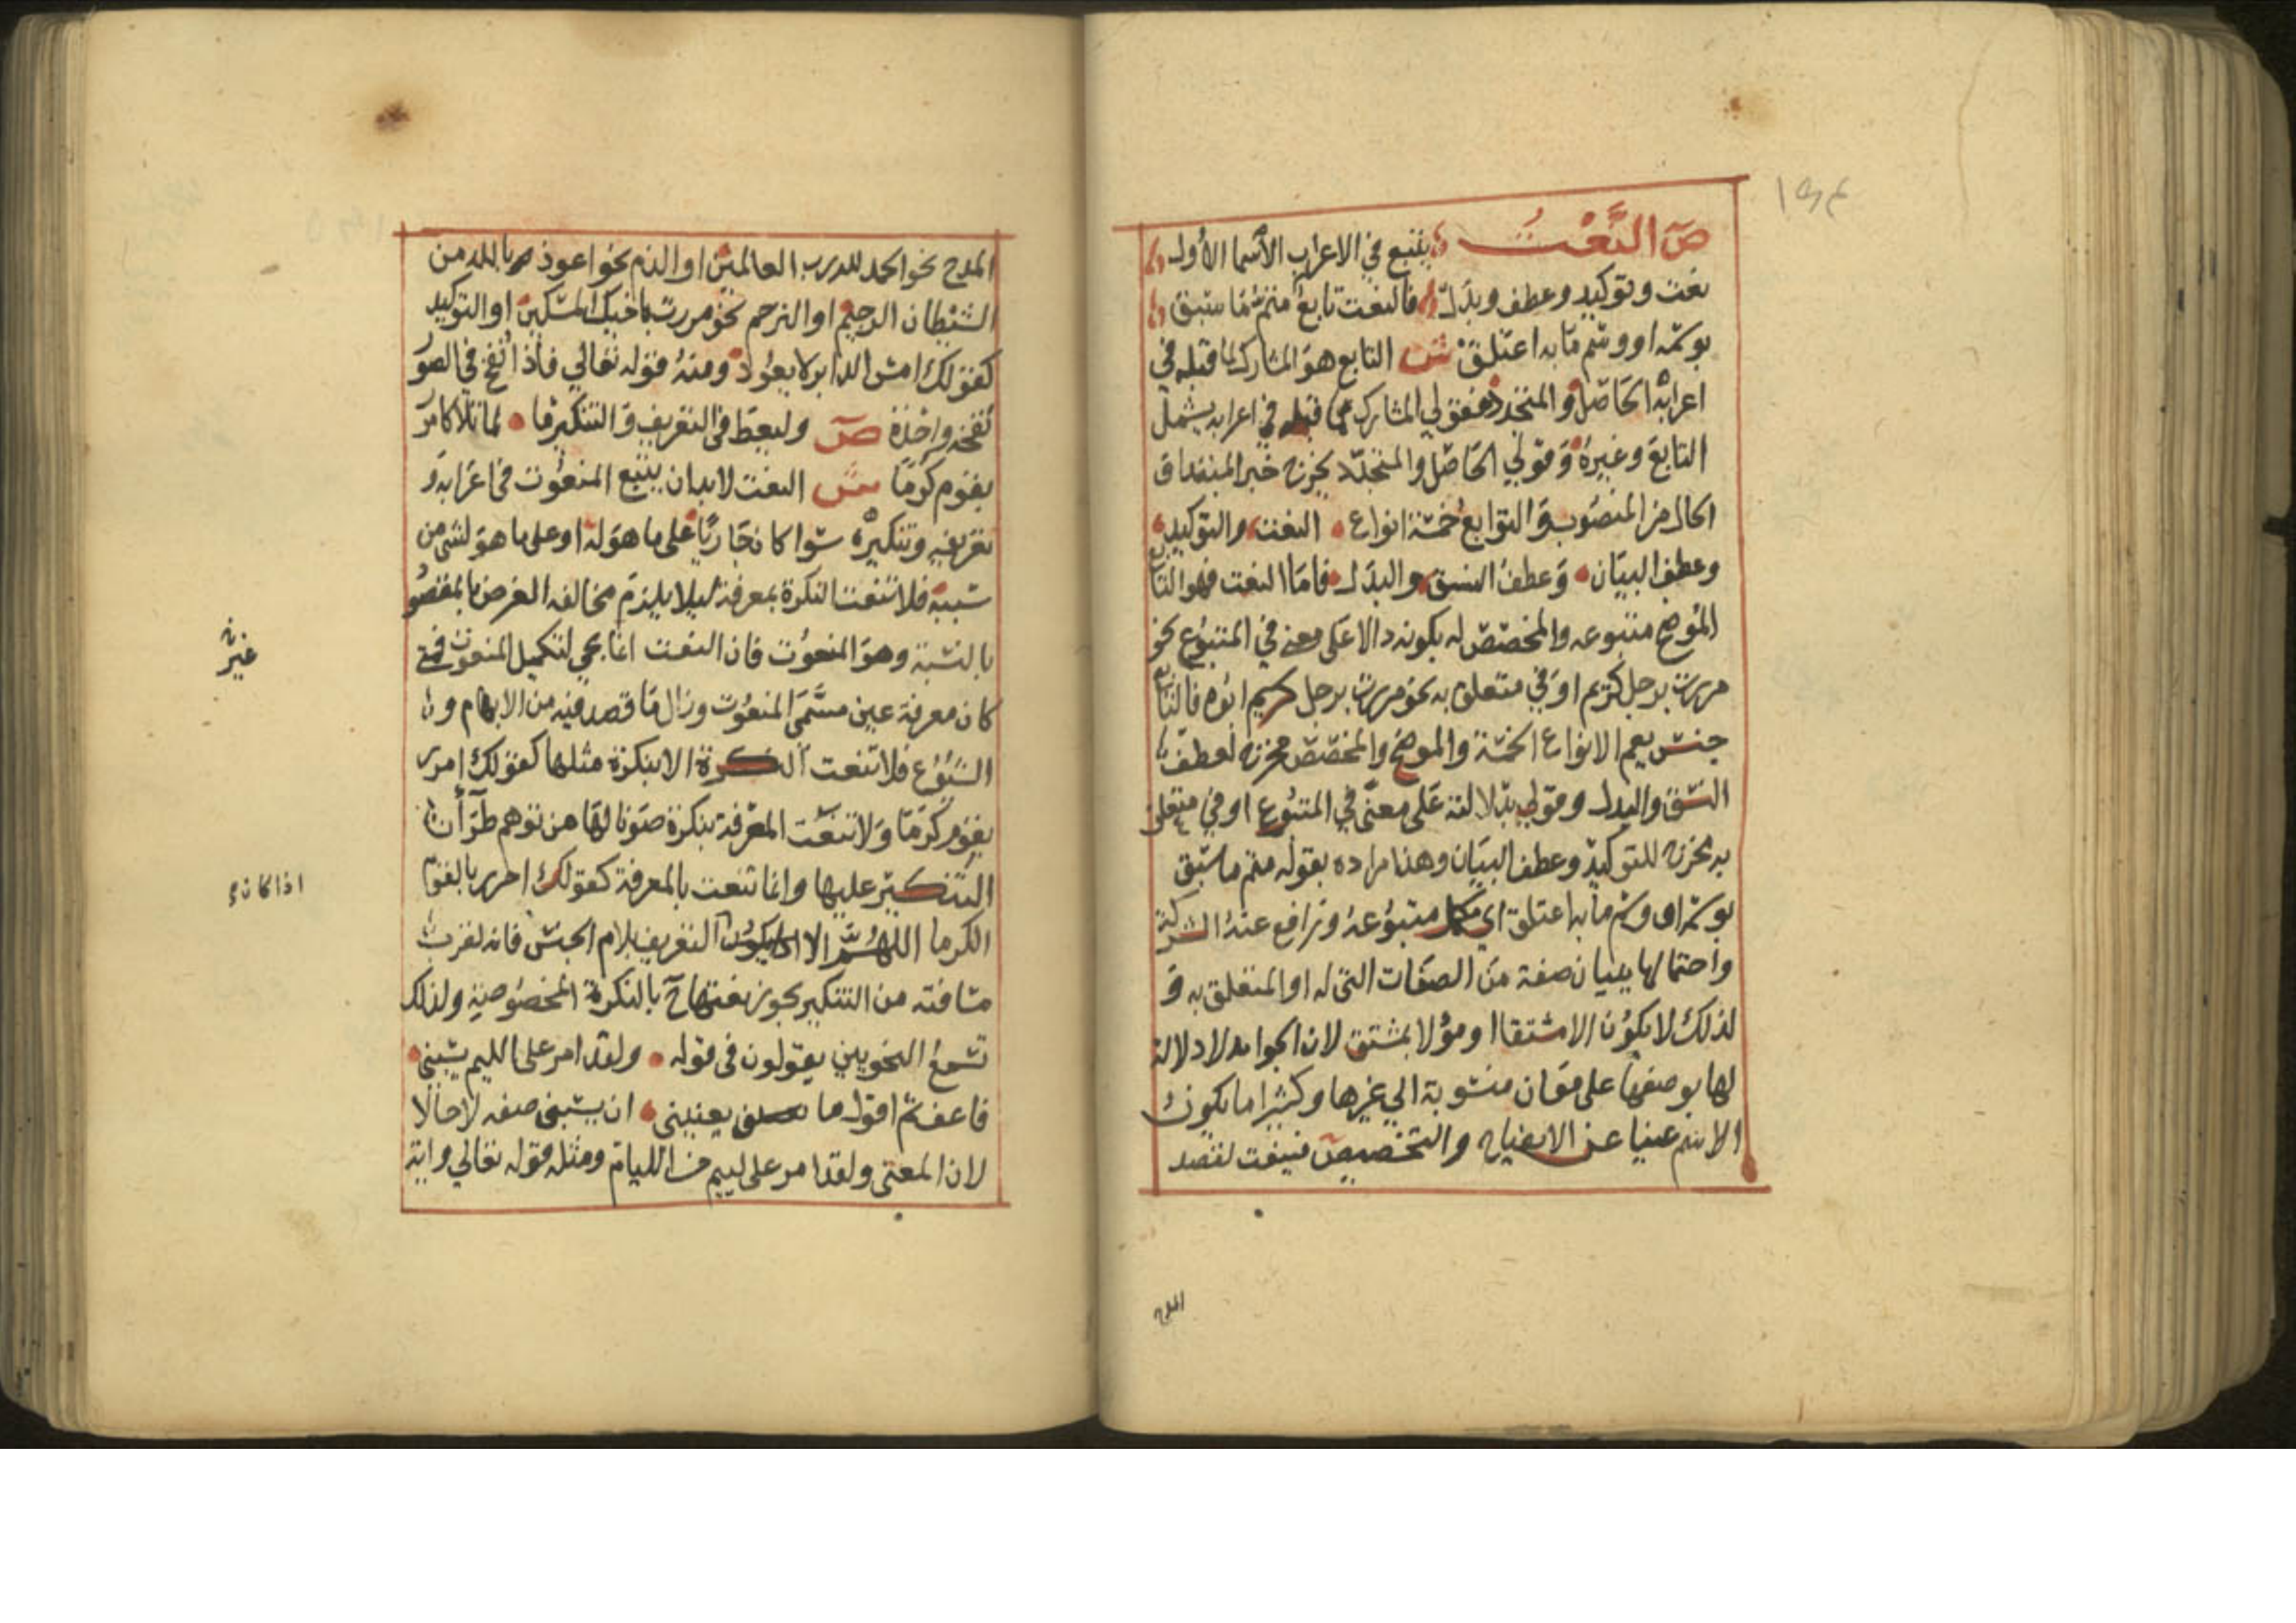 ١٩٤
ص النَّعْتُ يتبع في الاعراب الأسما الأول
نعت وتوكيد وعطف وبدل فالنعت تابع متم ما سبق
بوسمه او وسم ما به اعتلق ش التابع هو المشارك لما قبله في
اعرابه الحاصل والمتجدد فقولي المشارك لما قبله في اعرابه يشمل
التابع وغيره وقولي الحاصل والمتجدد يخرج خبر المبتدا و
الحال من المنصوب والتوابع خمسة انواع النعت والتوكيد
وعطف البيان وعطف النسق والبدل فاما النعت فهو التابع
الموضح متبوعه والمخصص له بكونه دالا على معنى في المتبوع نحو
مررت برجل كريم او في متعلق به نحو مررت برجل كريم ابوه فالتابع
جنس يعم الانواع الخمسة والموضح والمخصص مخرج لعطف
النسق والبدل وقولي بدلالته على معنى في المتبوع او في متعلق
به مخرج للتوكيد وعطف البيان وهذا مراده بقوله متم ما سبق
بوسمه او وسم ما به اعتلق اي مكمل متبوعه ورافع عنه الشركة
واحتمالها ببيان صفة من الصفات التي له او المتعلق به و
لذلك لا يكون الا مشتقا او مؤلا بمشتق لان الجوامد لا دلالة
لها بوضعها على معان منسوبة الي غيرها وكثيرا ما يكون
الاسم غنيا عن الايضاح والتخصيص فينعت لقصد
المدح
المدح نحو الحمد لله رب العالمين او الذم نحو اعوذ بالله من
الشيطان الرجيم او الترحم نحو مررت باخيك المسكين او التوكيد
كقولك امس الدابر لا يعود ومنه قوله تعالي فاذا نفخ في الصور
نفخة واحدة ص وليعط في التعريف والتنكير ما لما تلا كامر
بقوم كرما ش النعت لابد ان يتبع المنعوت في اعرابه و
تعريفه وتنكيره سوا كان جاريا على ما هو له او على ما هو لشي من
سببه فلا تنعت النكرة بمعرفة ليلا يلزم مخالفه الغرض بالمقصود
بالنسبة وهو المنعوت فان النعت انما يجي لتكميل المنعوت فمتى
كان معرفة عين مسمى المنعوت وزال ما قصد فيه من الابهام و
غير
الشيوع فلا تنعت النكرة الا بنكرة مثلها كقولك امرر
بقوم كرما ولا تنعت المعرفة بنكرة صونا لها من توهم طرآن
التنكير عليها وانما تنعت بالمعرفة كقولك امرر بالقوم
اذا كان
الكرما اللهم الا التعريف بلام الجنس فانه لقرب
مسافته من التنكير يجوز نعتها ح بالنكرة المخصوصة ولذلك
تسمع النحويين يقولون في قوله ولقد امر على اللئيم يسبني
فاعف ثم اقول ما يعنيني ان يسبني صفه لا حالا
لان المعنى ولقد امر على لييم من الليام ومثله قوله تعالي واية